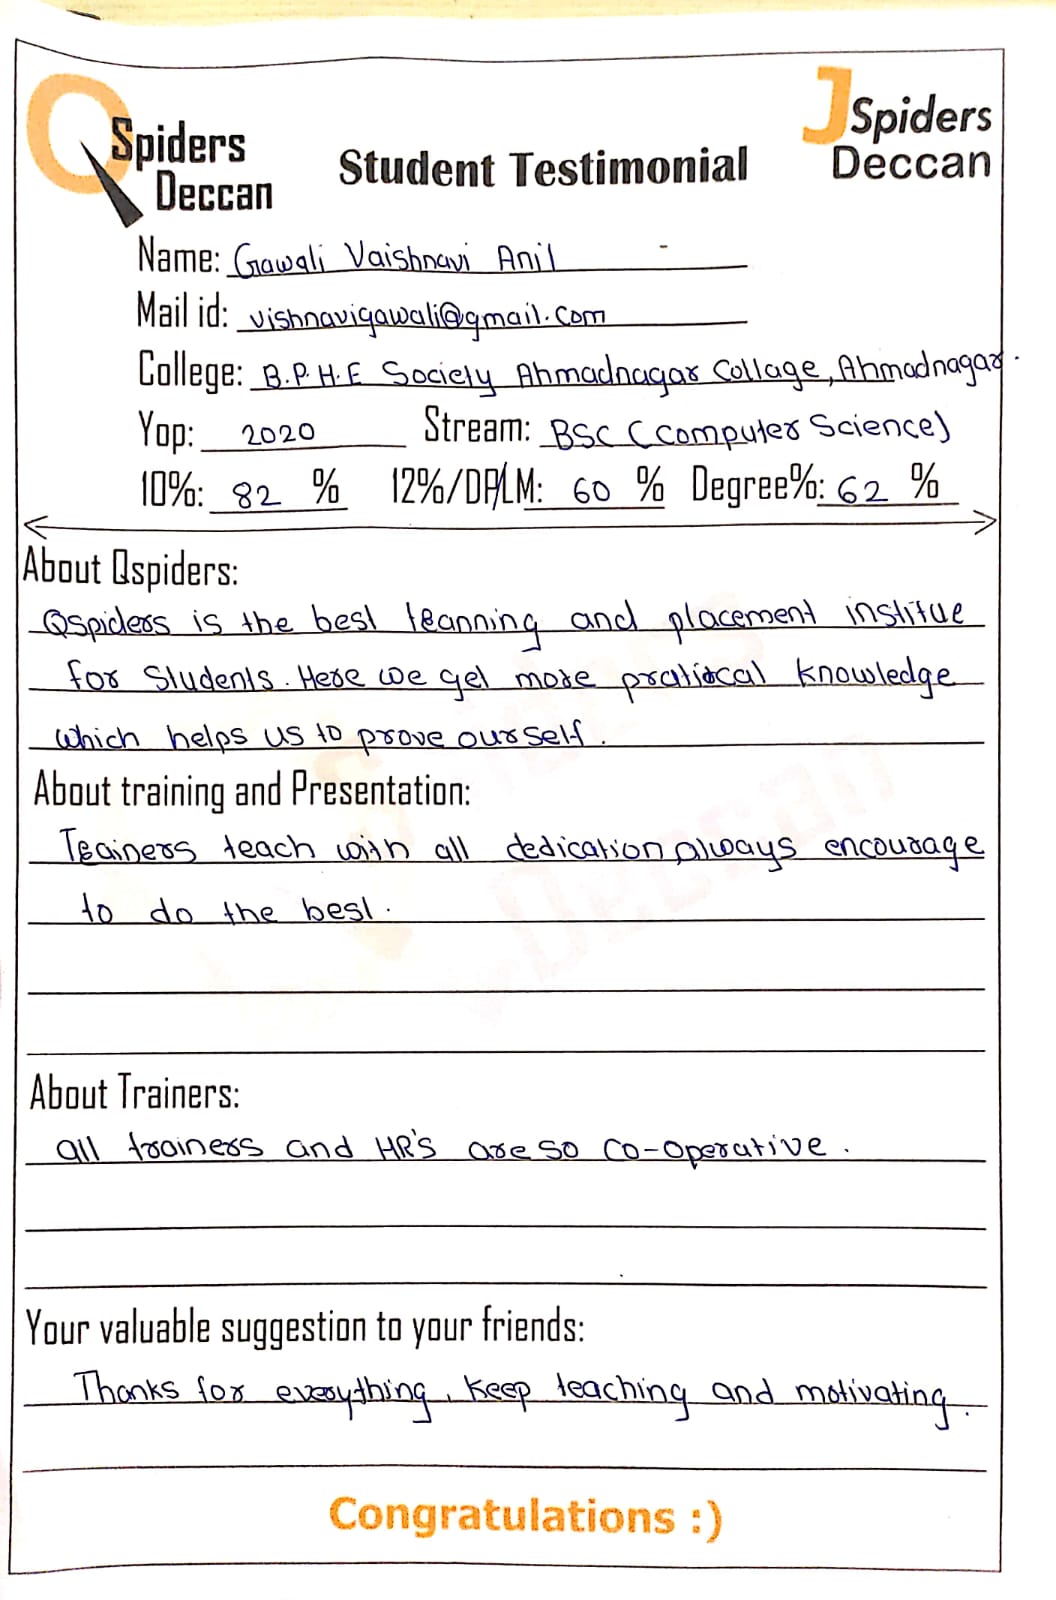 QSpiders Deccan
JSpiders Deccan
Student Testimonial
Name: Gawali Vaishnavi Anil
Mail id: vishnavigawali@gmail.com
College: B.P.H.E Society Ahmadnagar Collage, Ahmadnagar.
Yop: 2020 Stream: BSC (Computer Science)
10%: 82 % 12%/DPLM: 60 % Degree%: 62 %
About Qspiders:
Qspiders is the best teanning and placement institue
for Students. Here we get more pratical knowledge
which helps us to prove ourself.
About training and Presentation:
Trainers teach with all dedication always encourage
to do the best.
About Trainers:
all trainers and HR's are so co-operative.
Your valuable suggestion to your friends:
Thanks for everything, Keep teaching and motivating.
Congratulations :)